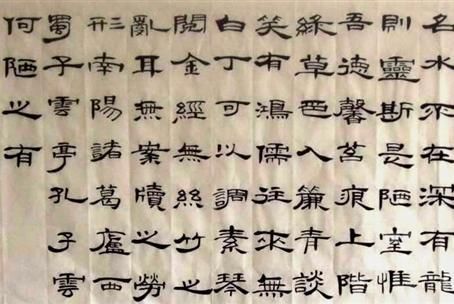 名水不在深有龍
則靈斯是陋室惟
吾德馨苔痕上階
綠草色入簾青談
笑有鴻儒往來無
白丁可以調素琴
閱金經無絲竹之
亂耳無案牘之勞
形南陽諸葛廬西
蜀子雲亭孔子雲
何陋之有